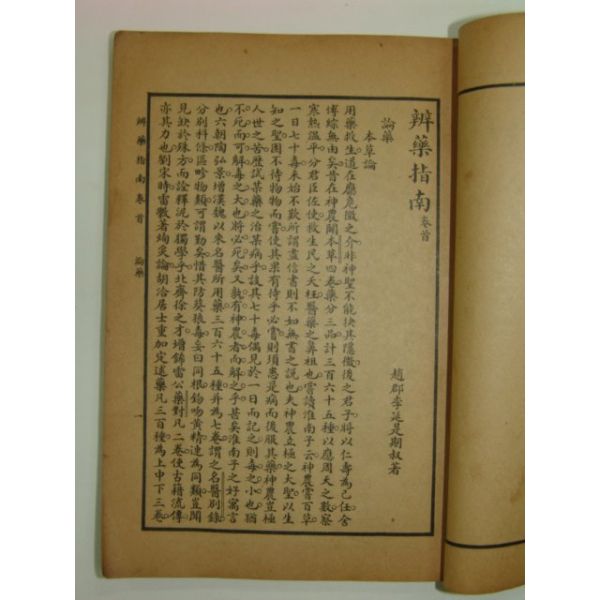 辨藥指南 卷首
趙郡李延是期叔著
論藥
本草論
用藥救生道在應危微之介非神聖不能抉其隱微後之君子將以仁壽為己任舍
博綜無由矣昔在神農闢本草四卷藥分三品計三百六十五種以應周天之數察
寒熱溫平分君臣佐使救生民之夭枉醫藥之鼻祖也嘗讀淮南子云神農嘗百草
一日七十毒未始不歎所謂盡信書則不如無書之說也夫神農立極之大聖以生
知之聖固不待物物而嘗使其果有待乎必嘗則須患是病而後服其藥神農豈極
人世之苦歷試某藥之治某病乎設其七十毒偶見於一日而記之則毒之小也猶
不死而可解毒之大也將必死矣又孰有神農者而解之乎甚矣淮南子之好寓言
也六朝陶弘景增漢魏以來名醫所用藥三百六十五種并為七卷謂之名醫別錄
分別科條區畛物類可謂勤矣惜其防葵狼毒妄曰同根鉤吻黃精連為同類豈聞
見缺於殊方而詮釋泥於獨學乎北齊徐之才增飾雷公藥對凡二卷使古籍流傳
亦其力也劉宋時雷斅著炮炙論胡洽居士重加定述藥凡三百種為上中下三卷
辨藥指南 卷首 論藥 一